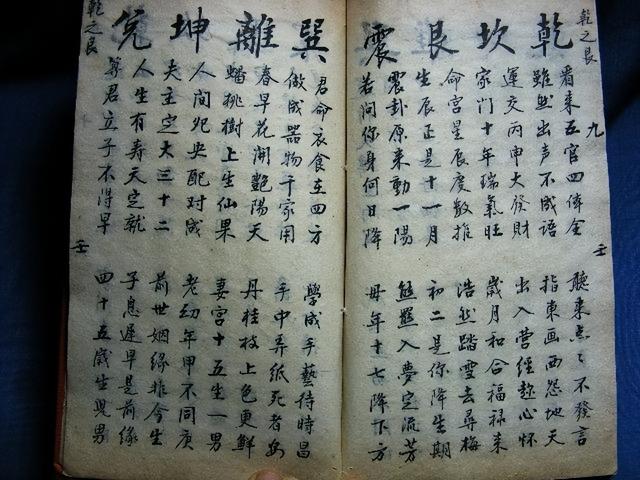 乾之艮
九
壬
乾坎艮震
看来五官四体全 聽来点々不發言
雖然出声不成语 指東画西怨地天
運交丙申大發財 出入营經趂心怀
家门十年瑞氣旺 歲月和合福禄来
命宫星辰度数推 浩然踏雪去尋梅
生辰正是十一月 初二是你降生期
震卦原来動一陽 熊羆入夢定流芳
若问你身何日降 母年十七降下方
巽離坤兑
君命衣食在四方 學成手藝待時昌
做成器物千家用 手中弄纸死者安
春早花開艷陽天 丹桂枝上色更鮮
蟠桃樹上生仙果 妻宫十五生一男
人間夗央配对成 老幼年甲不同庚
夫主定大三十二 前世姻缘非今生
人生有寿天定就 子息遲早是前缘
算君立子不得早 四十五歲生兒男
乾之艮
壬